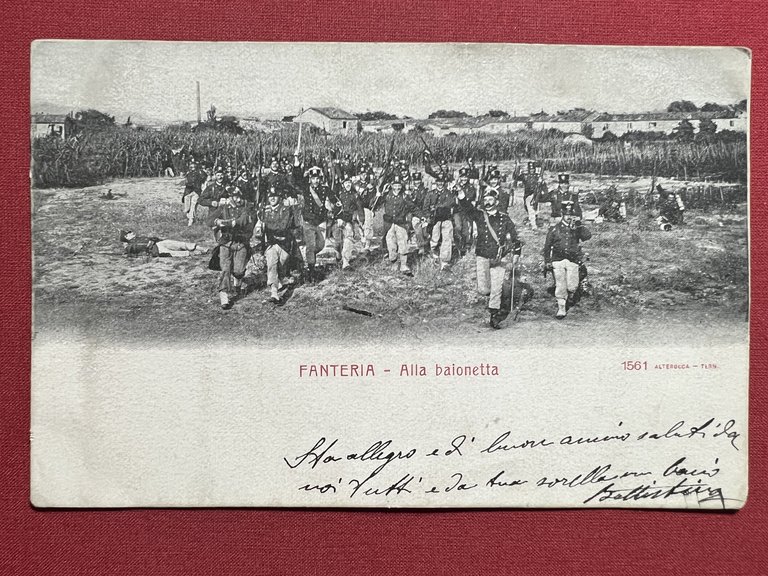 FANTERIA - Alla baionetta
1561 ALTEROCCA - TERNI
Sta allegro e di buon animo saluti da
noi tutti e da tua sorella un bacio
Battistina